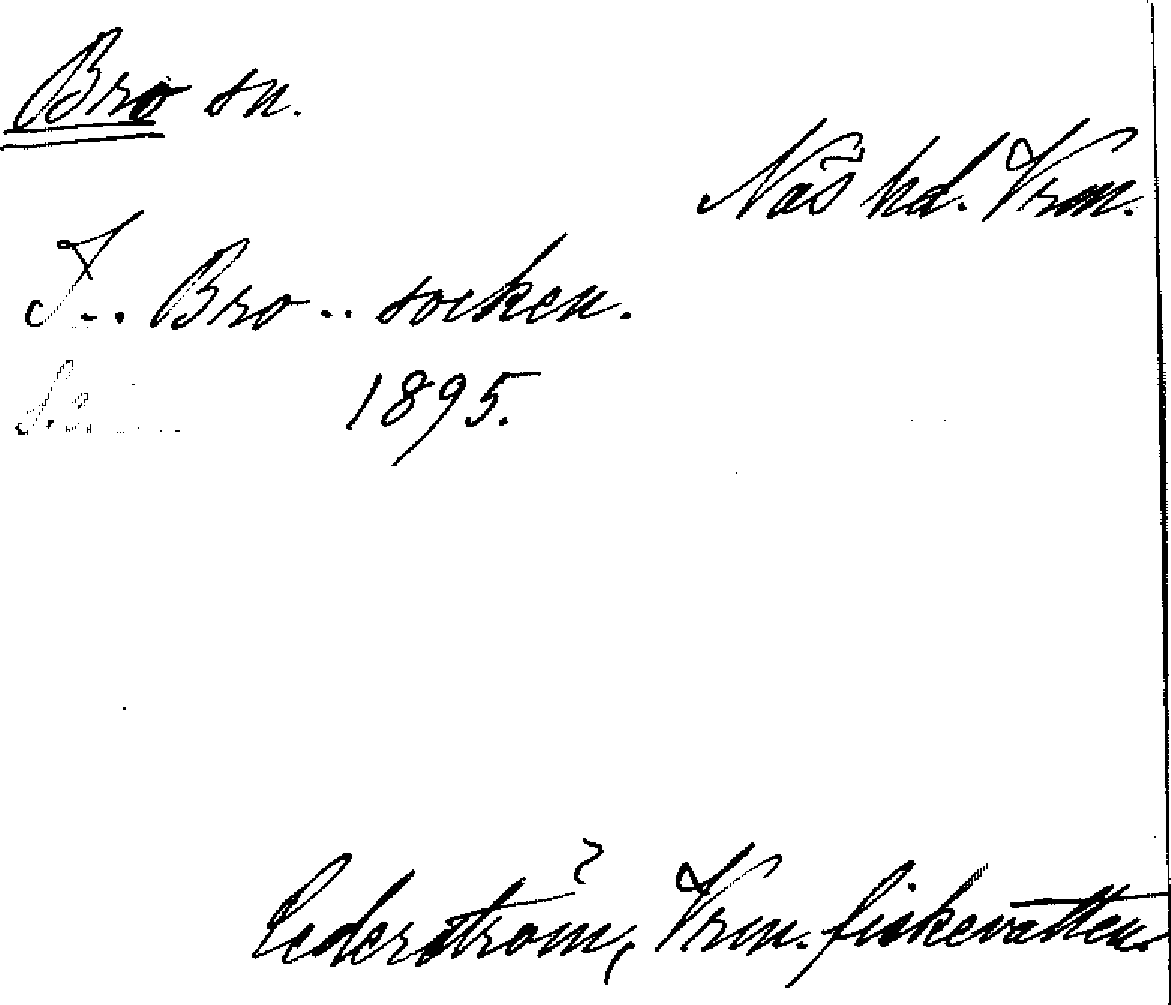 Bro sn.
Näs hd. Vrm.
I.. Bro.. socken.
1895.
Cederström, Vrm. fiskevatten.